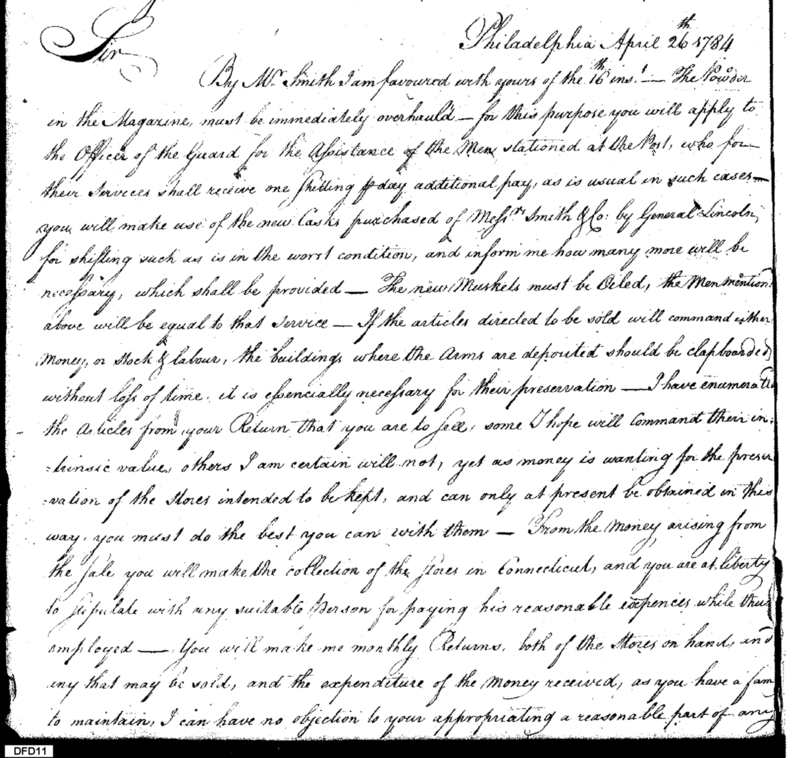 Philadelphia April 26th 1784
Sir
By Mr. Smith I am favoured with yours of the 16th inst. — The Powder
in the Magazine, must be immediately overhauld — for this purpose you will apply to
the Officer of the Guard for the Assistance of the Men stationed at the Post, who for
their Services shall receive one shilling ⅌ day additional pay, as is usual in such cases —
you will make use of the new Casks purchased of Messrs. Smith & Co: by General Lincoln,
for shifting such as is in the worst condition, and inform me how many more will be
necessary, which shall be provided — The new Muskets must be Oiled, the Men mention
above will be equal to that service — If the articles directed to be sold will command either
Money, or Stock & labour, the buildings where the Arms are deposited should be clapboarded
without loss of time. it is essencially necessary for their preservation — I have enumerated
the Articles from your Return that you are to sell, some I hope will command their in-
-trinsic value, others I am certain will not, yet as money is wanting for the preser
-vation of the Stores intended to be kept, and can only at present be obtained in this
way, you must do the best you can with them — From the Money arising from
the sale you will make the collection of the stores in Connecticut, and you are at liberty
to stipulate with any suitable Person for paying his reasonable expences while thus
employed — You will make me monthly Returns, both of the Stores on hand, and
any that may be sold, and the expenditure of the Money received, as you have a fam
to maintain, I can have no objection to your appropriating a reasonable part of any
DFD11